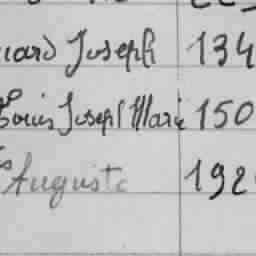 Joseph 134
Louis Joseph Marie 150
Auguste 192